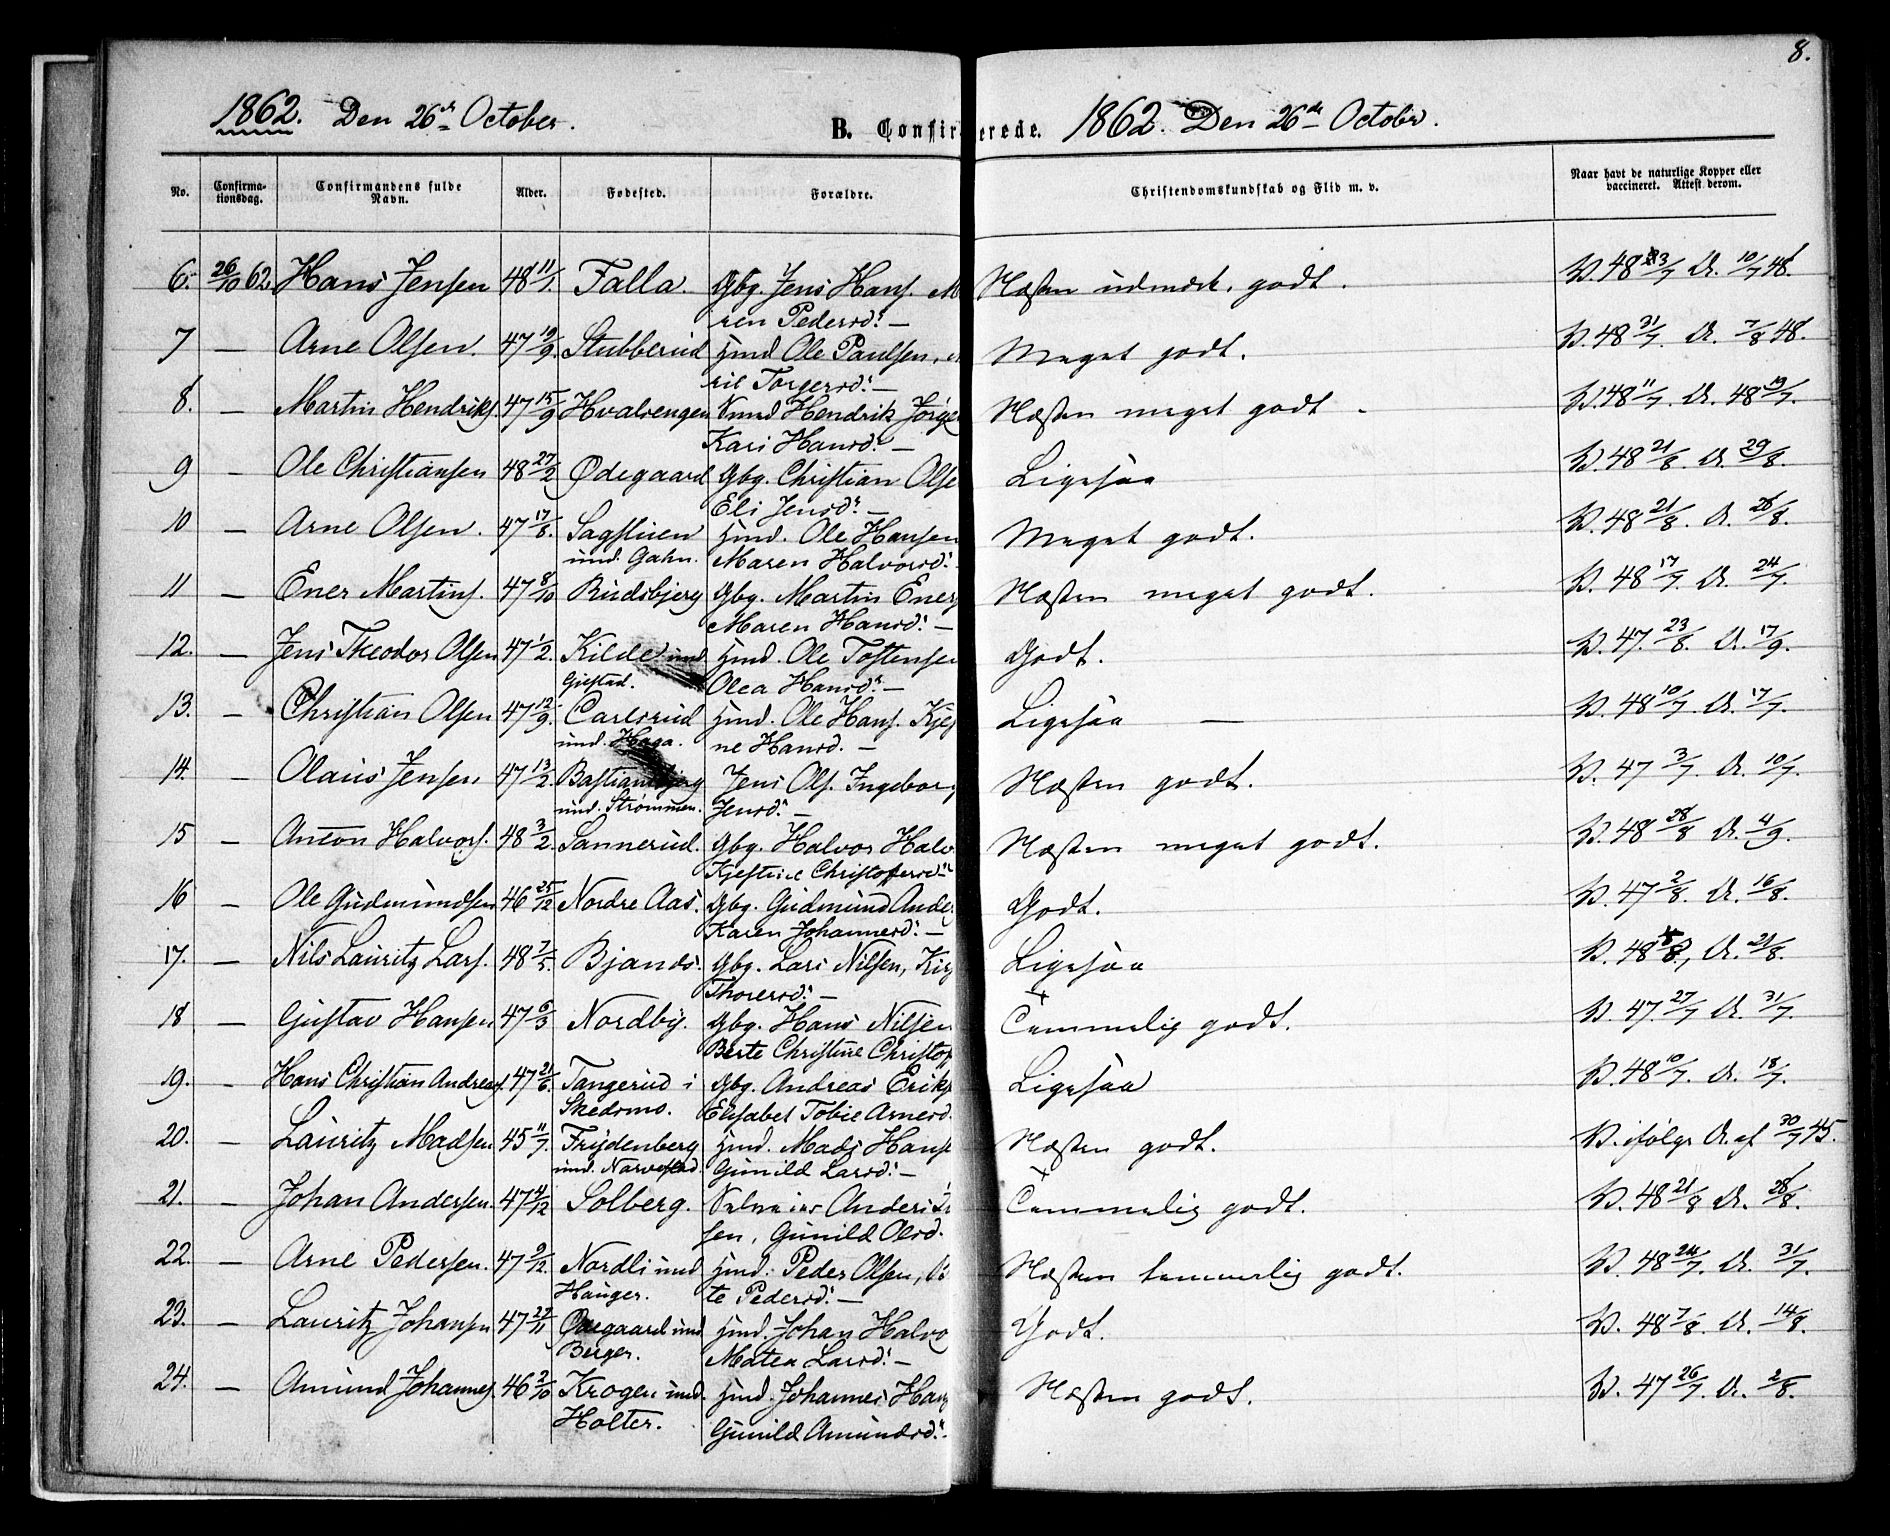 8.
1862. Den 26de October.
B. Confirmerede.
1862. Den 26de October.
No. Confirmationsdag. Confirmandens fulde Navn. Alder. Fødested. Forældre. Christendomskundskab og Flid m. v. Naar havt de naturlige Kopper eller vaccineret. Attest derom.
6. 26/10 62 Hans Jensen 48 11/1. Falla. Gbg. Jens Hans. Ma Næsten udmærk. godt. V. 48 3/7 A. 10/7 48.
ren Pedersd: —
7 — Arne Olsen. 47 19/9. Stubberud Hmd Ole Paulsen, Meget godt. V. 48 31/7. A. 7/8 48.
ril Torgersd: —
8. — Martin Hendriks. 47 15/9 Hvalsengen Hendrik Jørge Næsten meget godt. V. 48 11/7. A. 48 19/7.
Kari Hansd: —
9 — Ole Christiansen 48 27/2 Ødegaard Gbg. Christian Olse Ligesaa V. 48 21/8. A. 29/8.
Eli Jensd: —
10 — Arne Olsen. 47 17/8. Sagstuen Hmd. Ole Hansen Meget godt. V. 48 21/8. A. 28/8.
und. Gahn. Maren Halvorsd:
11 — Ener Martins. 47 8/10 Rudsbjerg Gbg. Martin Eners Næsten meget godt. V. 48 17/7. A. 24/7.
Maren Hansd: —
12. — Jens Theodor Olsen 47 1/2. Kilde und Hmd. Ole Tostensen Godt. V. 47. 23/8. A. 17/9.
Gistad. Olea Hansd: —
13. — Christian Olsen 47 12/9. Carlsrud Hmd. Ole Hans. Kjes Ligesaa — V. 48 10/7. A. 17/7.
und. Haga. ne Hansd. —
14. — Olaus Jensen 47 13/2. Bastiansbjerg Jens Ols. Ingeborg Næsten godt. V. 47 3/7. A. 10/7.
und. Strømmen. Jensd: —
15 — Anton Halvors. 48 3/2. Sannerud. Gbg. Halvor Halv Næsten meget godt. V. 48 28/8 A. 4/9.
Kjestine Christofersd:
16 — Ole Gudmundsen 46 25/12 Nordre Aas. Gbg. Gudmund Ander Godt. V. 47 2/8. A. 16/8.
Karen Johannesd: —
17. — Nils Lauritz Lars. 48 7/5. Bjands. Gbg. Lars Nilsen, Kirs Ligesaa V. 48 A. 21/8.
Thoresd: —
18 — Gustav Hansen 47 6/3 Nordby. Gbg. Hans Nilsen Temmelig godt. V. 47. 27/7 A. 31/7.
Berte Christine Christof
19. — Hans Christian Andreas. 47 21/6. Tangerud i Gbg. Andreas Eriks Ligesaa V. 48 10/7. A. 18/7.
Skedsmo. Elisabet Tobie Arnesd.
20. — Lauritz Madsen 45 11/7. Frydenberg Hmd. Mads Hanse Næsten godt. V. ifølge A. af 30/7 45.
und. Narvestad. Gunild Larsd: —
21. — Johan Andersen. 47 4/12 Solberg. Anders Temmelig godt. V. 48 21/8 A. 28/8.
sen, Gunild Olsd.
22. — Arne Pedersen. 47 2/12. Nordli und Hmd. Peder Olsen, Næsten temmelig godt. V. 48 24/7. A. 31/7.
Hauger. te Pedersd: —
23. — Lauritz Johansen 47 27/11 Ødegaard und Hmd. Johan Halvo Godt. V. 48 7/8. A. 14/8.
Berger. Matea Larsd: —
24. — Amund Johannes. 46 2/10 Krogen und. Hmd. Johannes Hans Næsten godt. V. 47 26/7. A. 2/8.
Holter. Gunild Amundsd: